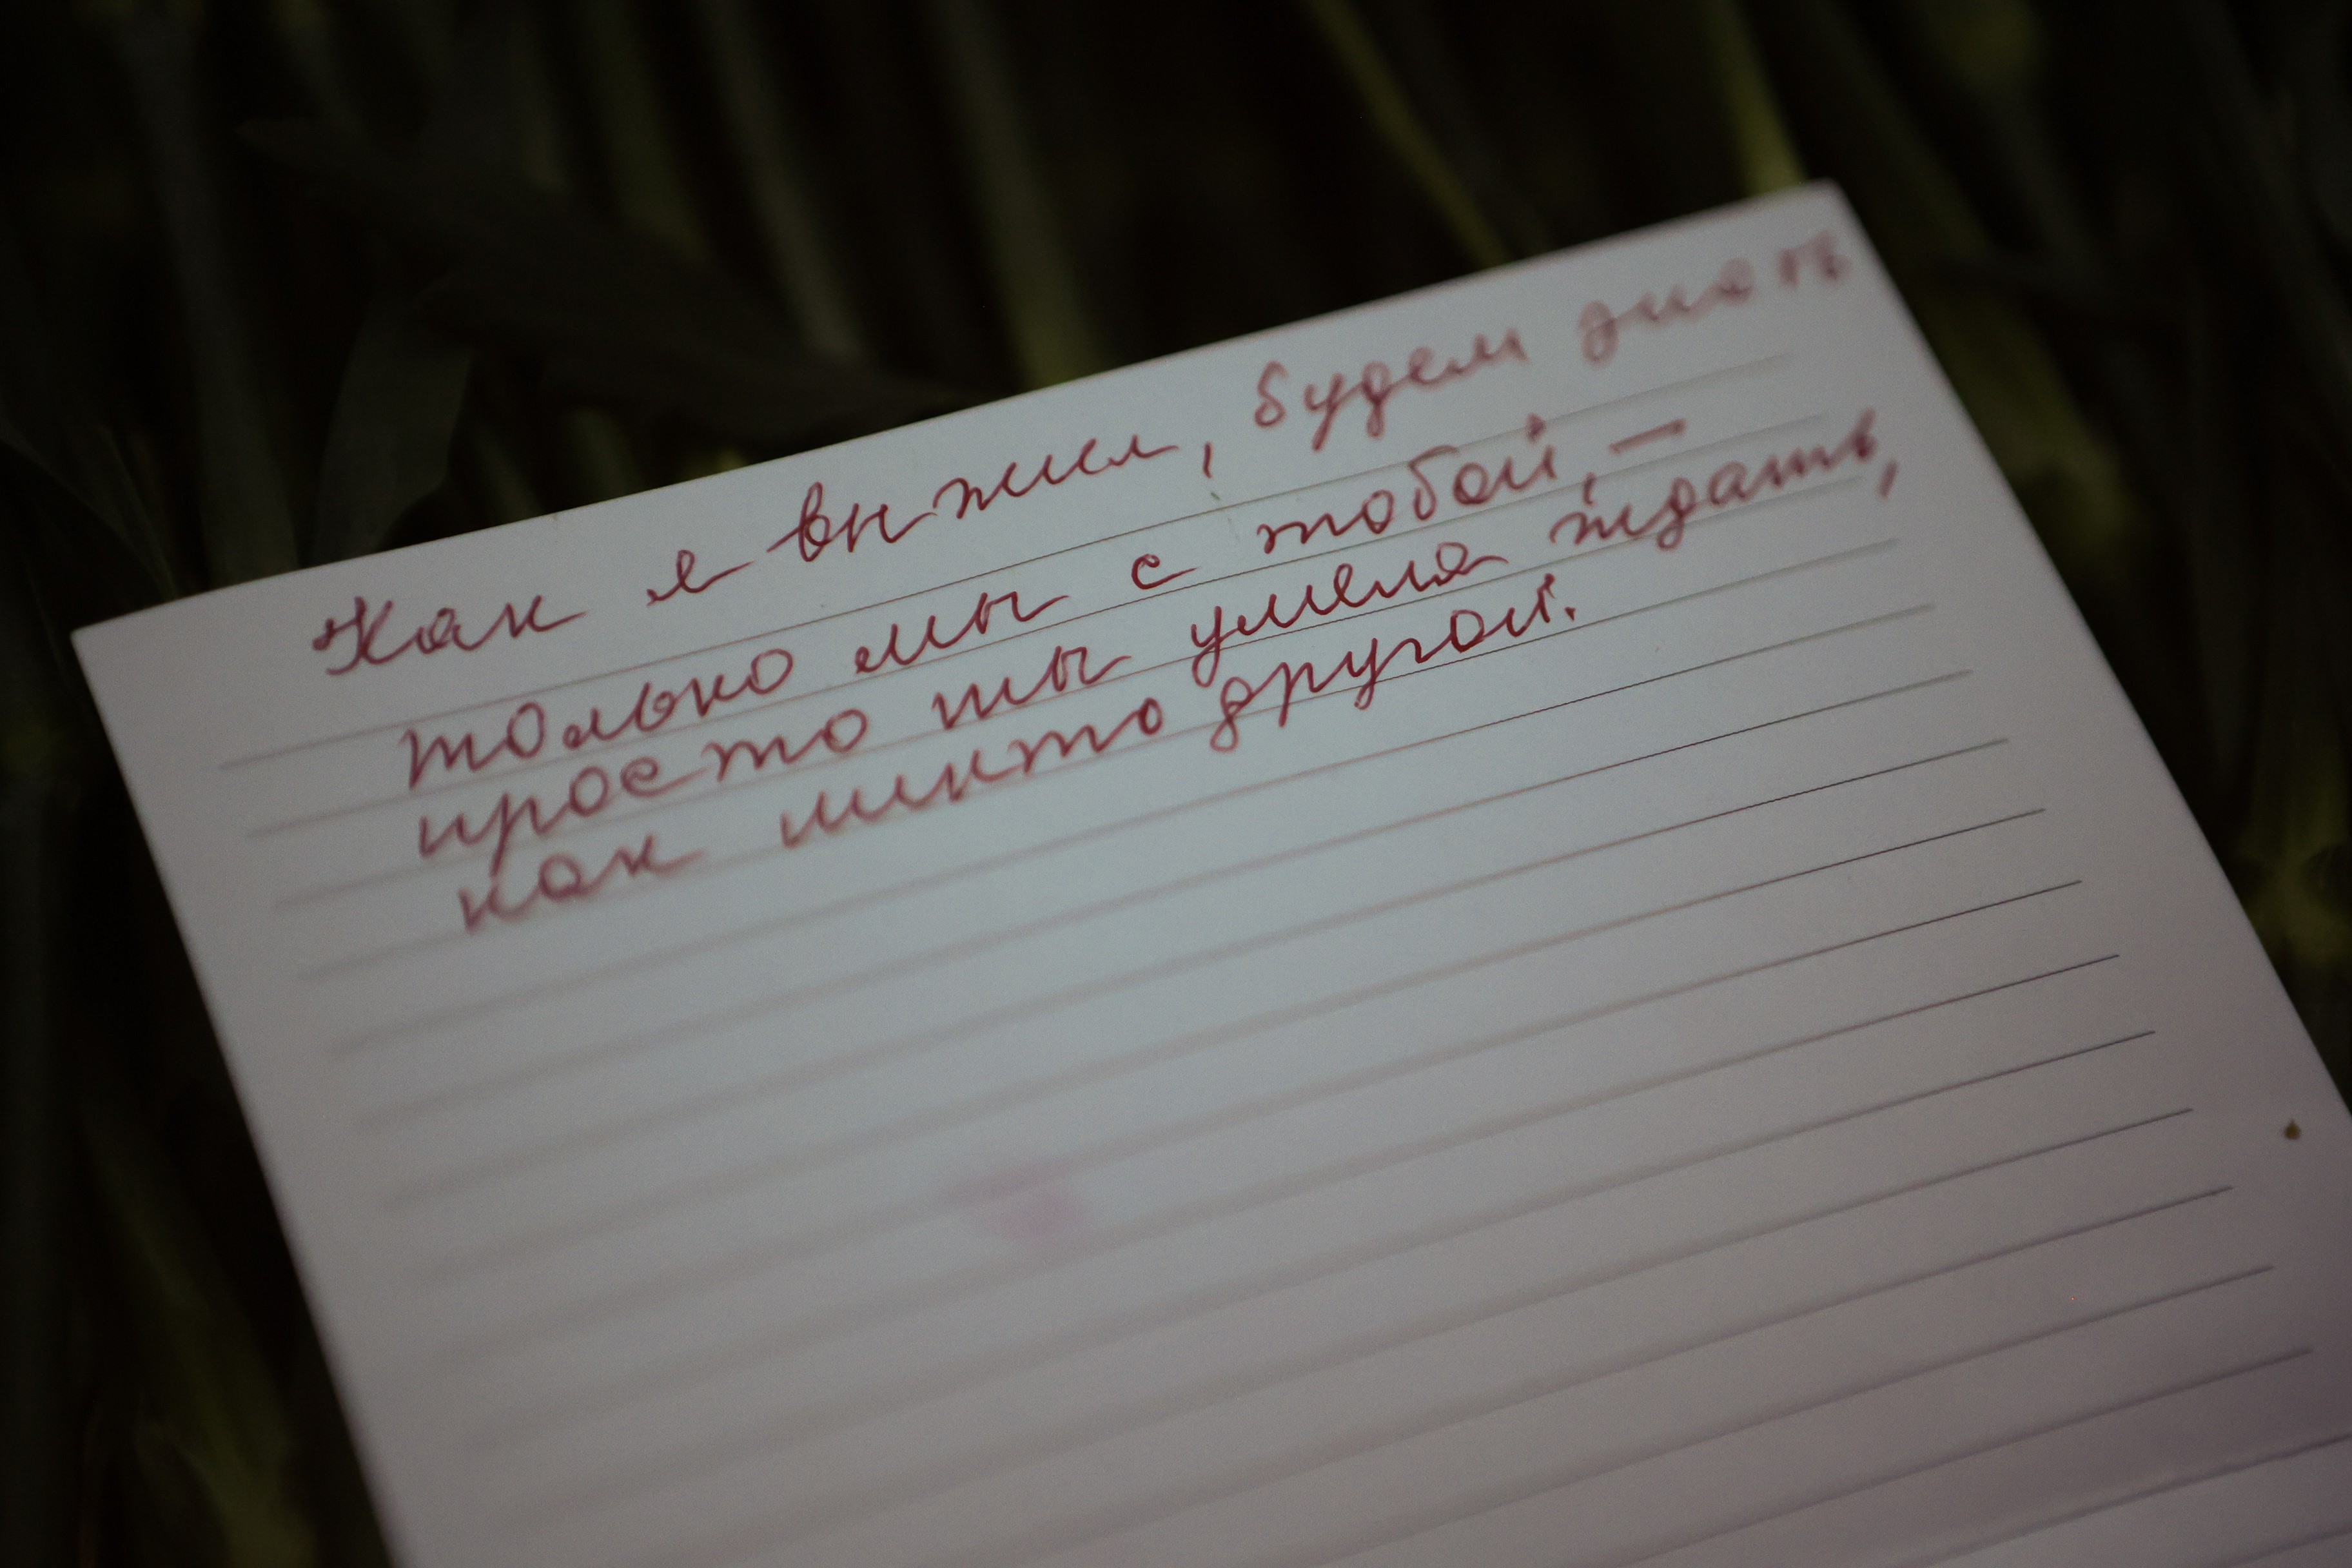 Как я выжил, будем знать
только мы с тобой, –
просто ты умела ждать,
как никто другой.